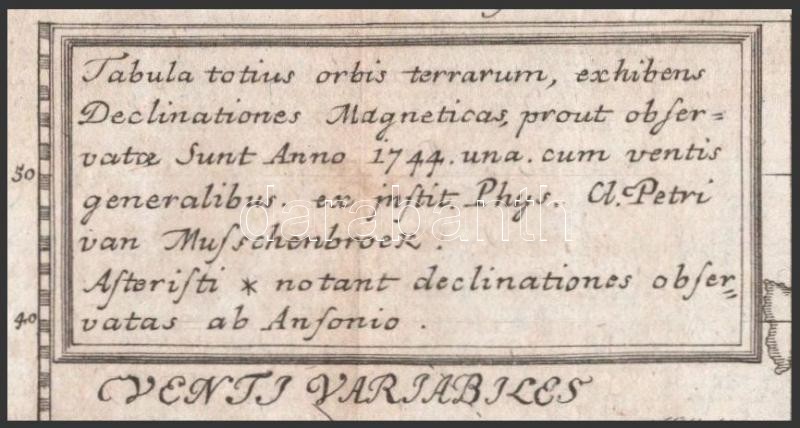 Tabula totius orbis terrarum, exhibens
Declinationes Magneticas, prout obſer=
vatæ Sunt Anno 1744. una. cum ventis
50
generalibus. ex inſtit. Phyſ. Cl. Petri
van Muſſchenbroek.
Aſteriſti * notant declinationes obſer=
40
vatas ab Anſonio.
VENTI VARIABILES
darabanth